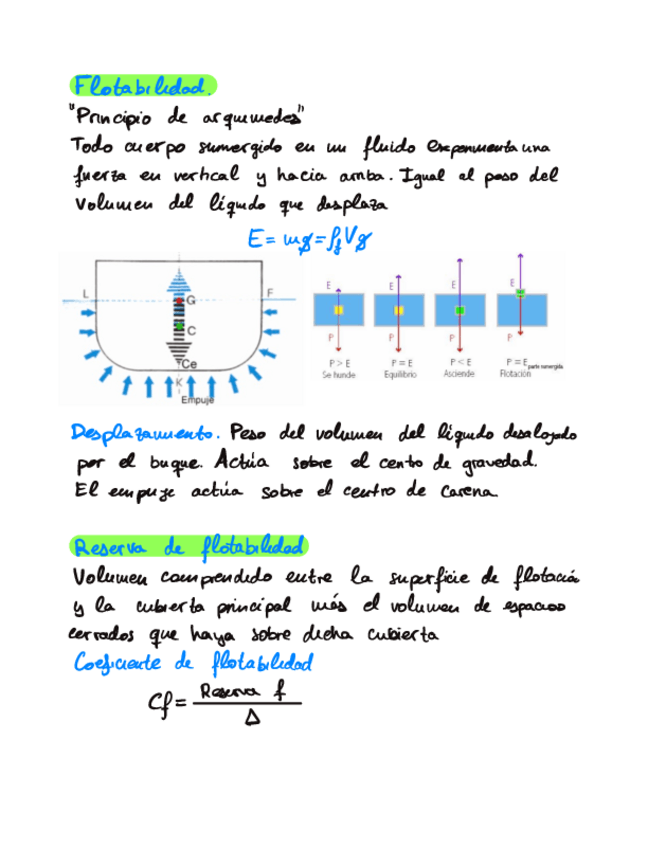 Flotabilidad.
"Principio de arquimedes"
Todo cuerpo sumergido en un fluido experimenta una
fuerza en vertical y hacia arriba. Igual al peso del
volumen del líquido que desplaza
E = mg = ρf V g
L F
G
C
Ce
K
Empuje
E E E E
P P P P
P > E P = E P < E P = E parte sumergida
Se hunde Equilibrio Asciende Flotación
Desplazamiento. Peso del volumen del líquido desalojado
por el buque. Actúa sobre el cento de gravedad.
El empuje actúa sobre el centro de carena.
Reserva de flotabilidad
Volumen comprendido entre la superficie de flotación
y la cubierta principal más el volumen de espacios
cerrados que haya sobre dicha cubierta
Coeficiente de flotabilidad
Cf = Reserva f
Δ